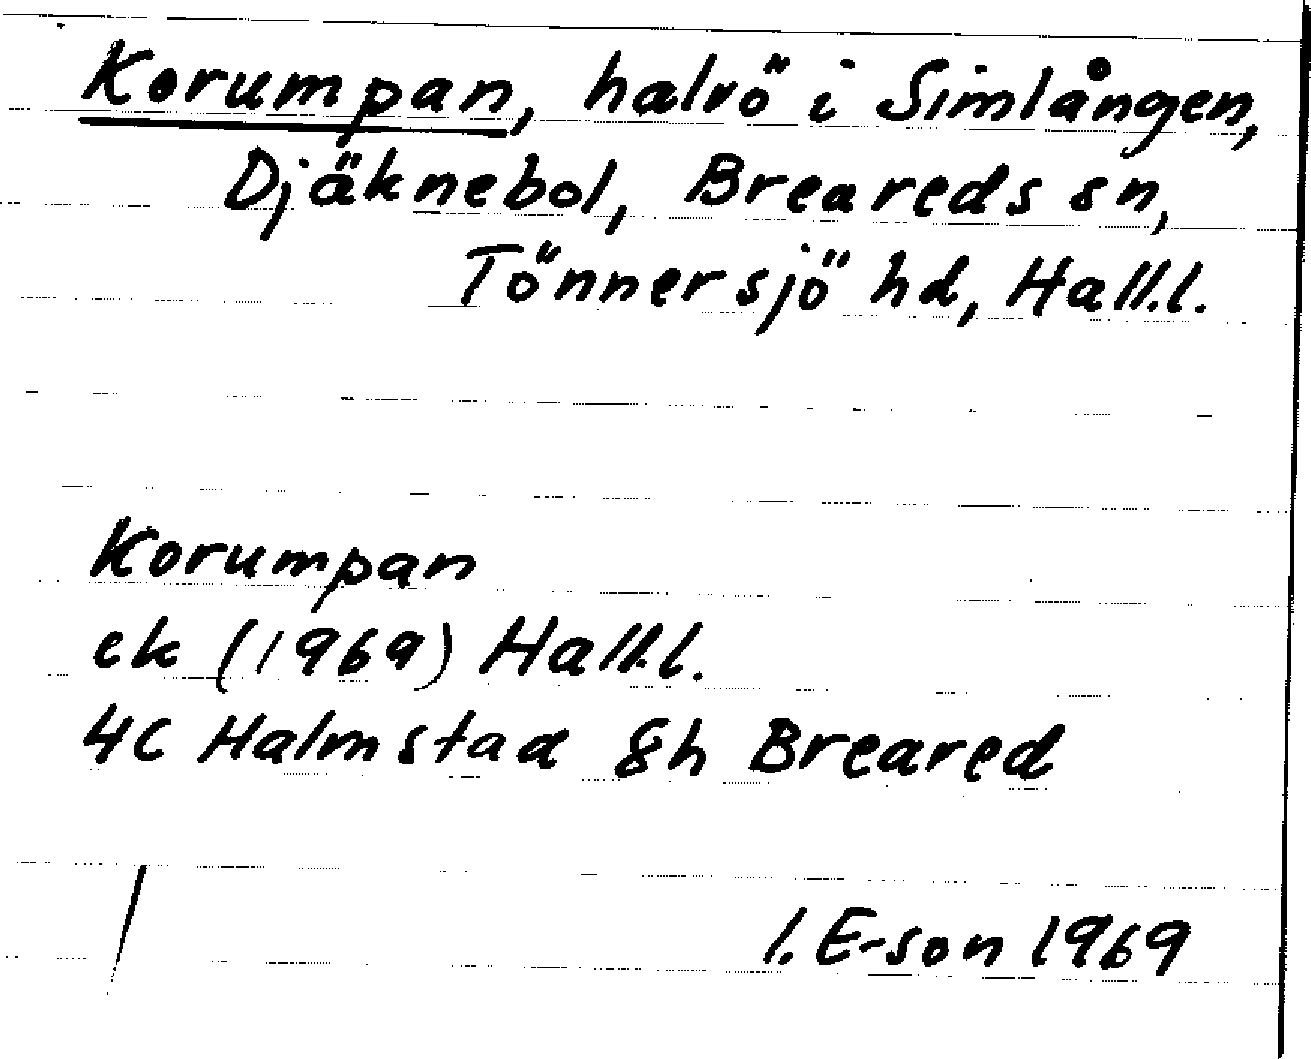 Korumpan, halvö i Simlången,
Djäknebol, Breareds sn,
Tönnersjö hd, Hall.l.
Korumpan
ek (1969) Hall.l.
4C Halmstad 8h Breared
I. E-son 1969